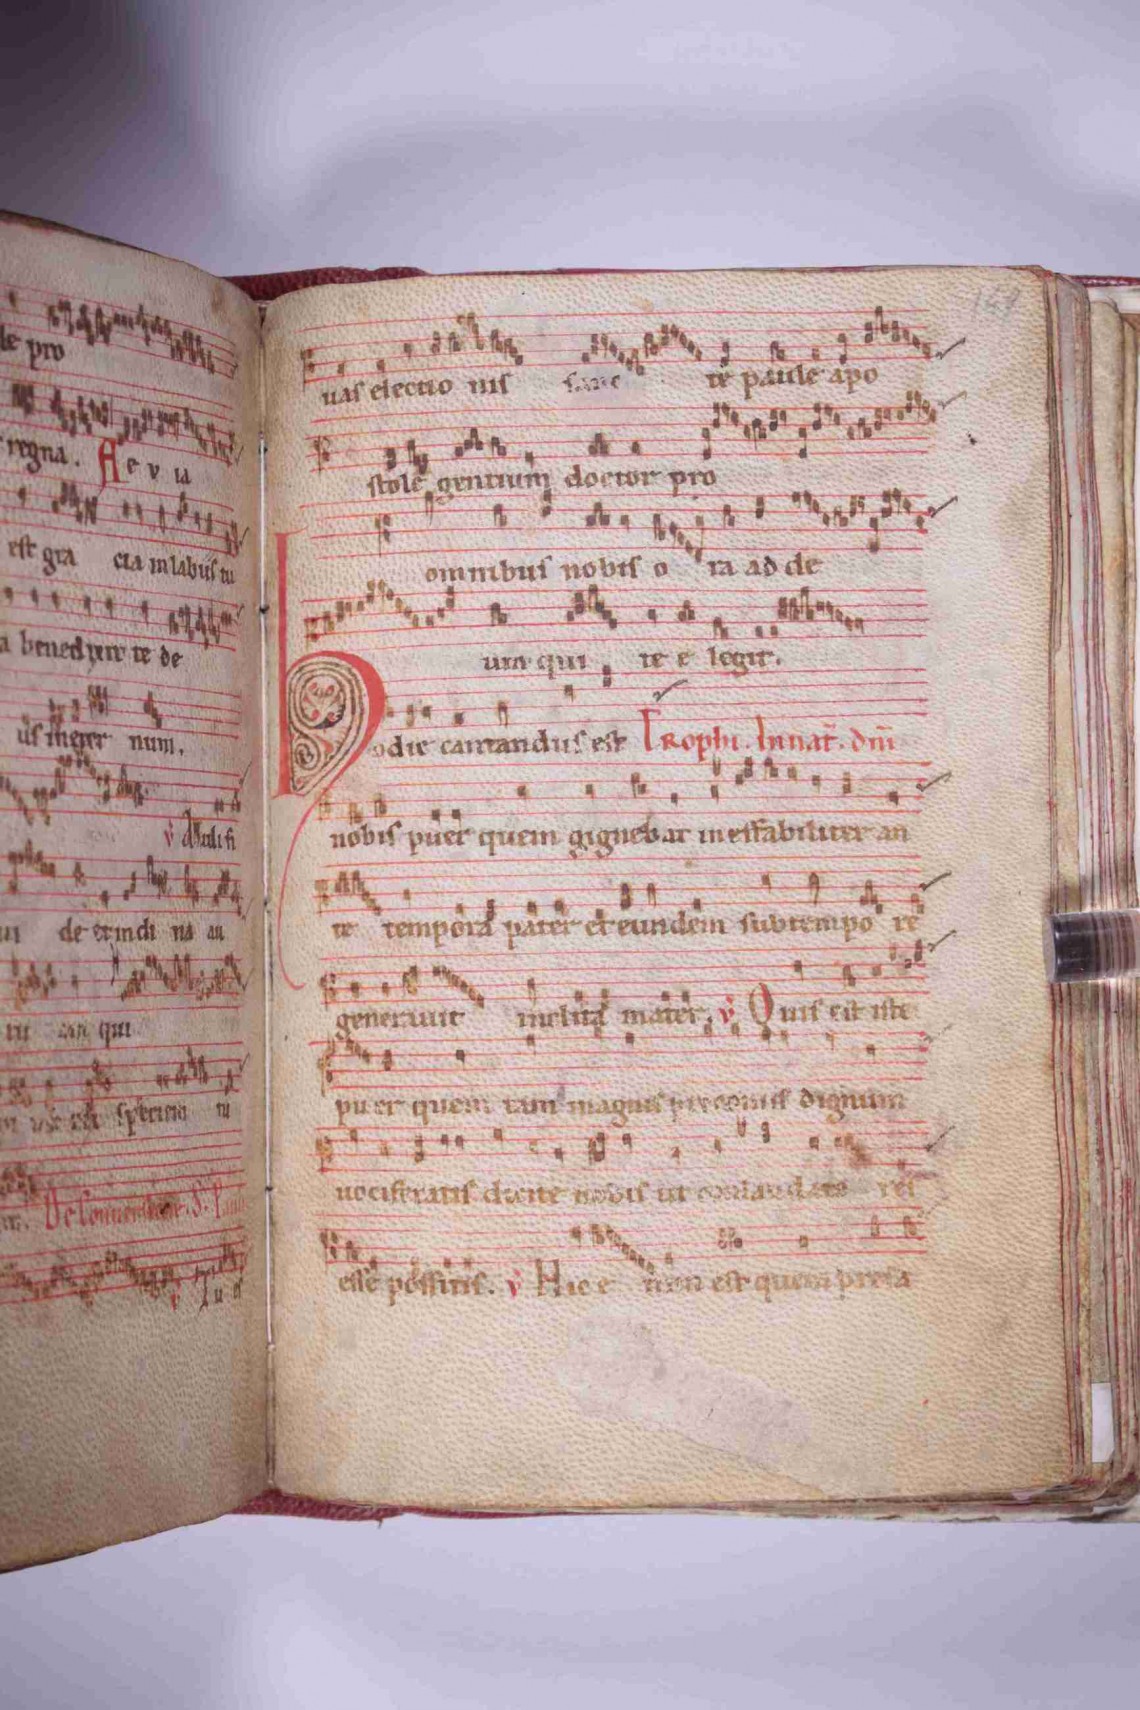 le pro
regna. Ae v ia
est gra cia in labiis tu
a benedixit te de
us in eter num.
℣ Audi fi
de et in di na au
tu am qui
speciem tu
De Conversione S. Pauli
℣ Tu es
vas electio nis sanc te paule apo
stole gentium doctor pro
omnibus nobis o ra ad de
um qui te e legit.
Hodie cantandus est Trophi. In nat. dni
nobis puer quem gignebat ineffabiliter an
te tempora pater et eundem sub tempo re
generavit inclita mater. ℣ Quis est iste
puer quem tam magnis preconiis dignum
vociferatis dicite nobis ut conlaudato res
esse possitis. ℣ Hic e nim est quem presa